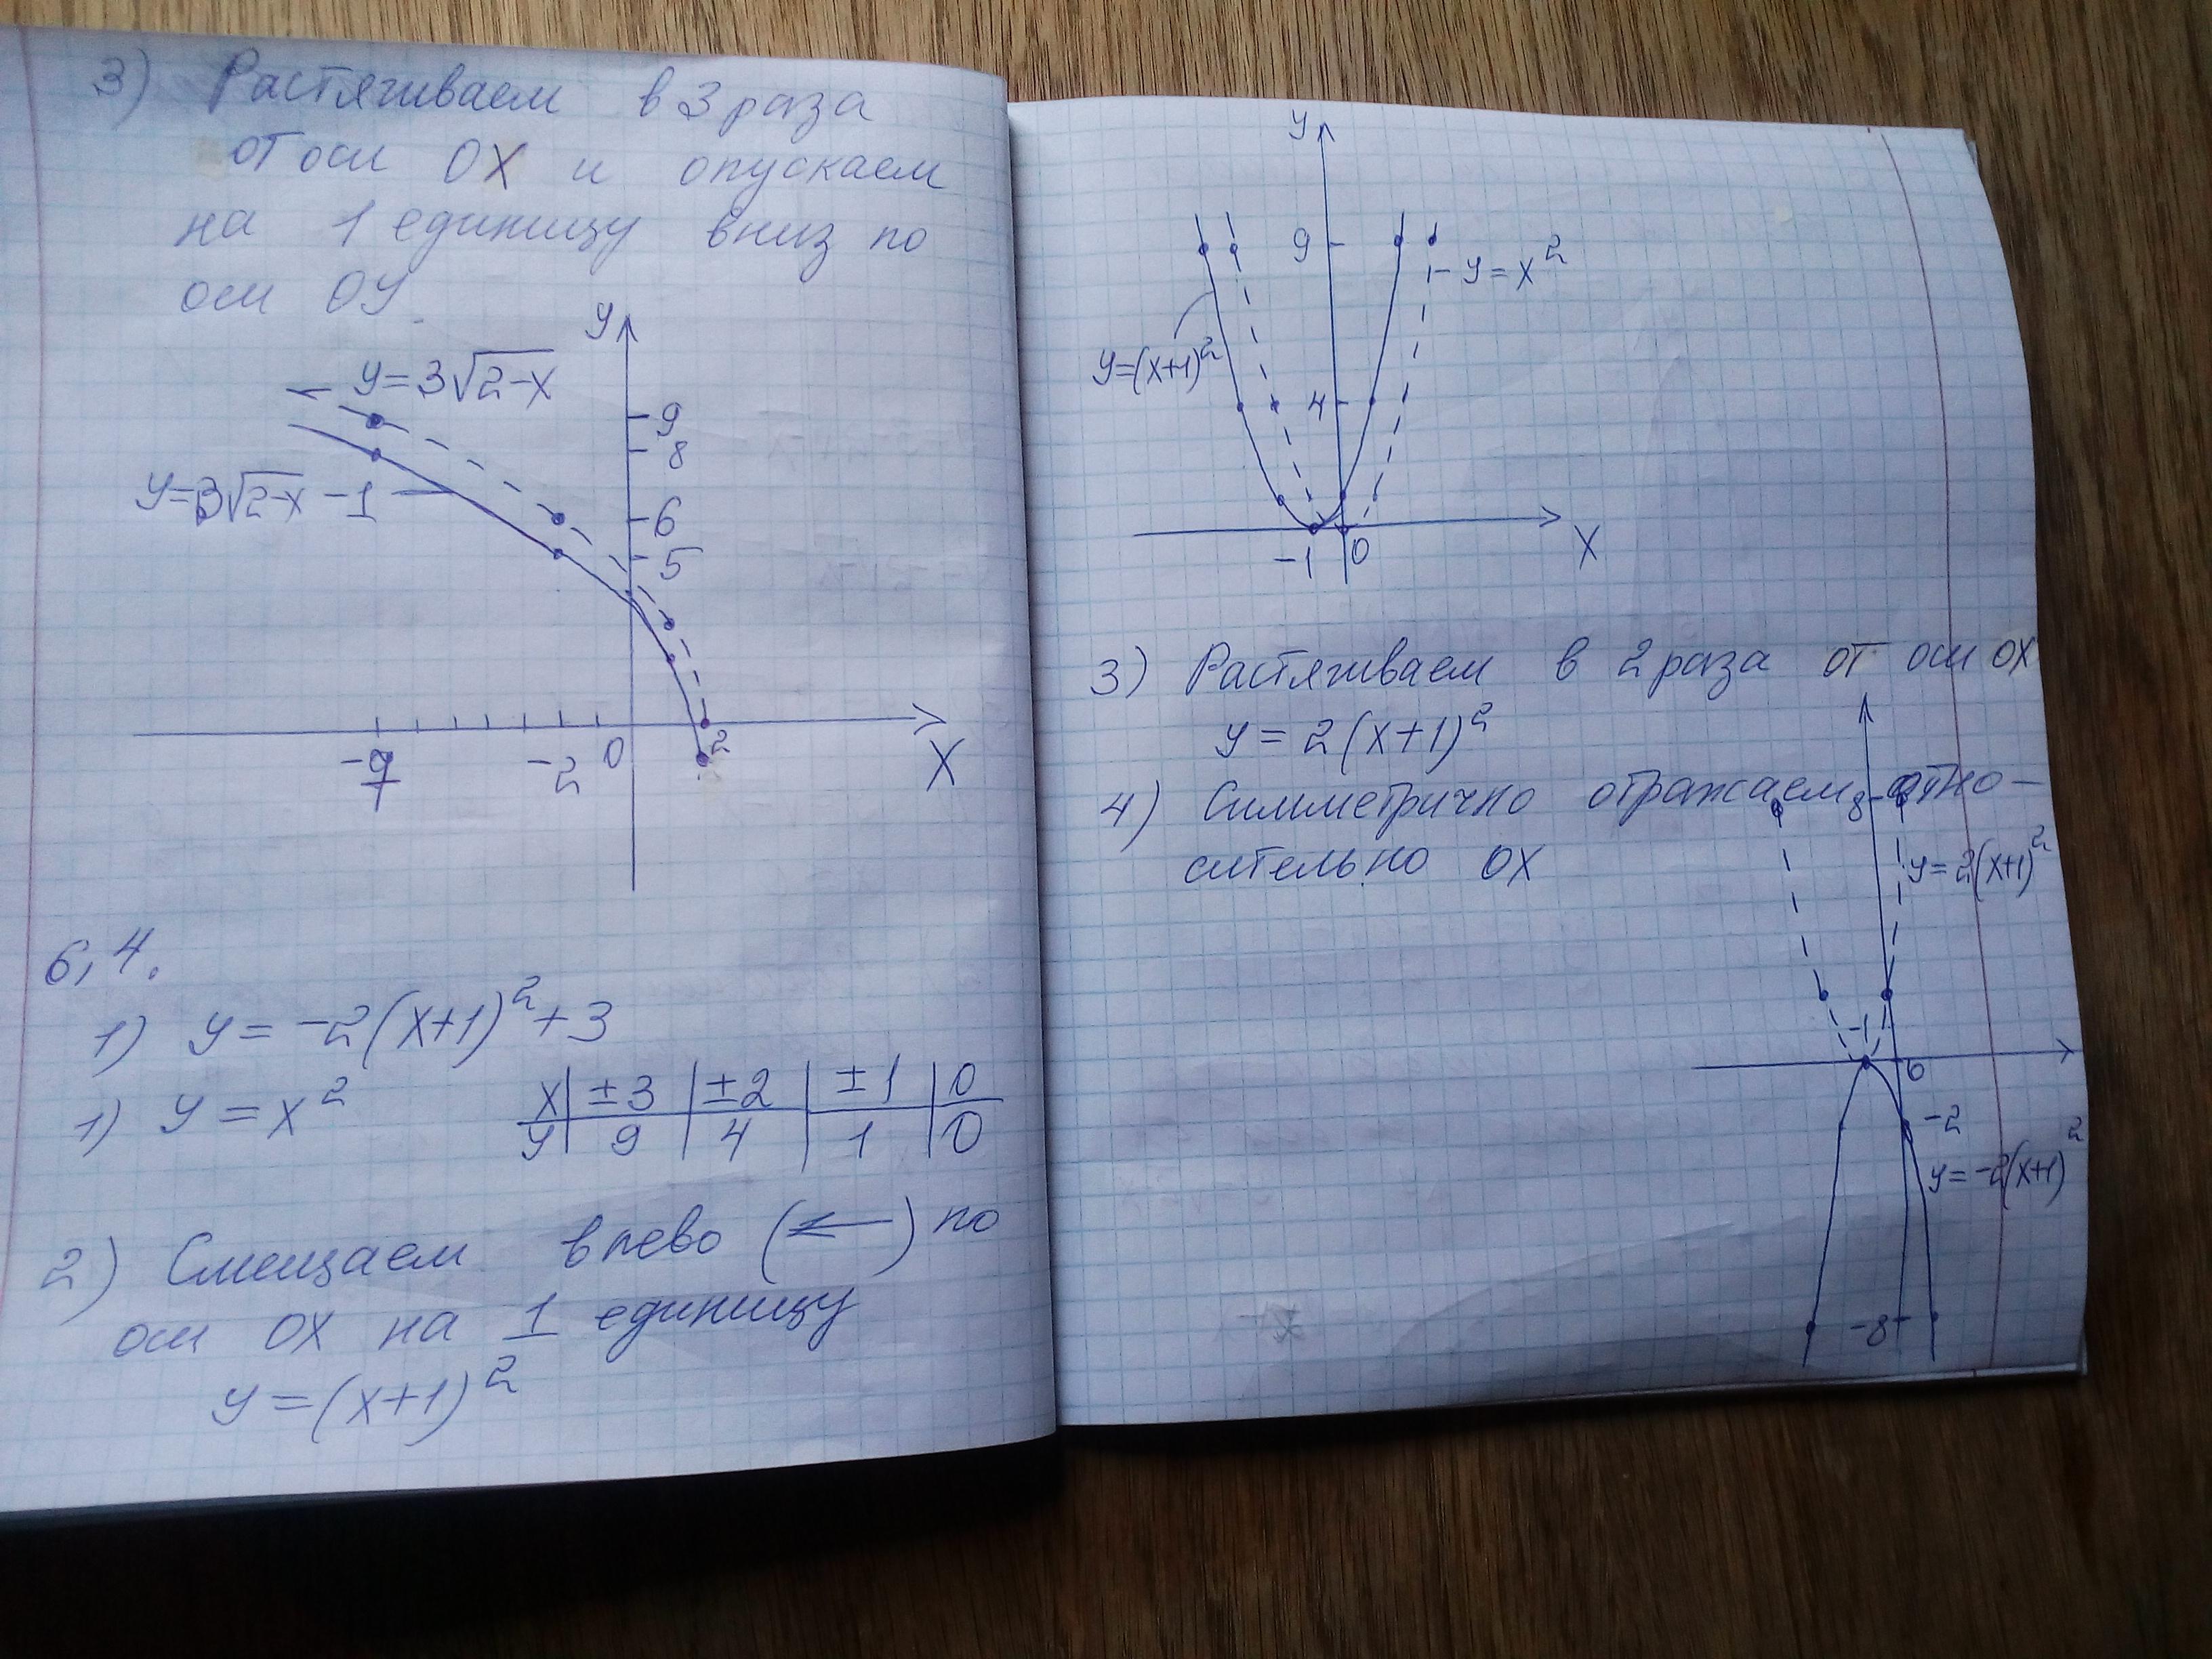 3) Растягиваем в 3 раза
от оси OX и опускаем
на 1 единицу вниз по
оси OY.
y
y=3√2-x
9
8
y=3√2-x -1
6
5
-7
-2
0
2
X
6,4.
1) y = -2(x+1)²+3
1) y = x²
x | ±3 | ±2 | ±1 | 0
y | 9 | 4 | 1 | 0
2) Смещаем влево (←) по
оси OX на 1 единицу
y=(x+1)²
y
9
y=x²
y=(x+1)²
4
-1
0
X
3) Растягиваем в 2 раза от оси OX
y = 2(x+1)²
4) Симметрично отражаем отно-
сительно OX
8
y=2(x+1)²
-1
0
-2
y=-2(x+1)²
-8